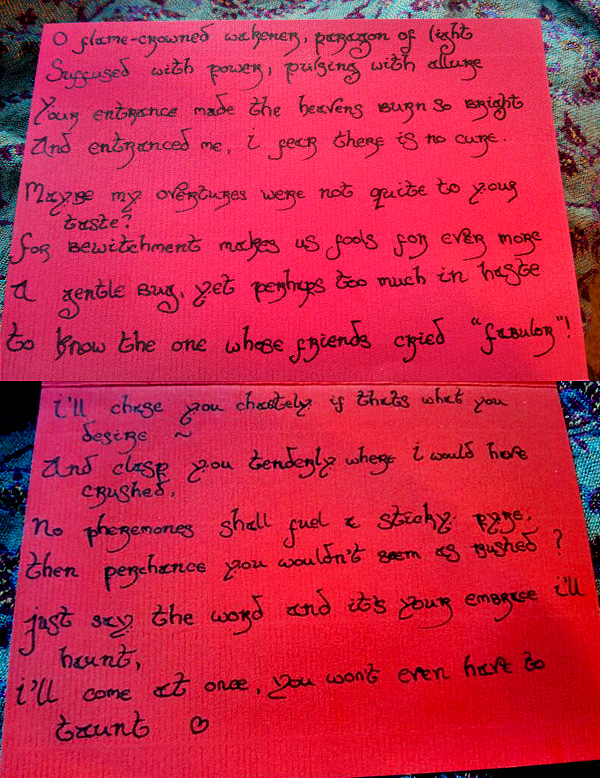 O flame-crowned wakener, paragon of light
Suffused with power, pulsing with allure
Your entrance made the heavens burn so bright
And entranced me, i fear there is no cure.
Maybe my overtures were not quite to your
taste?
for bewitchment makes us fools for ever more
a gentle bug, yet perhaps too much in haste
to know the one whose friends cried "fabulor"!
i'll chase you chastely if thats what you
desire ~
And clasp you tenderly where i would have
crushed,
No pheremones shall fuel a sticky pyre,
then perchance you wouldn't seem as rushed?
just say the word and it's your embrace i'll
haunt,
i'll come at once, you won't even have to
taunt ♡